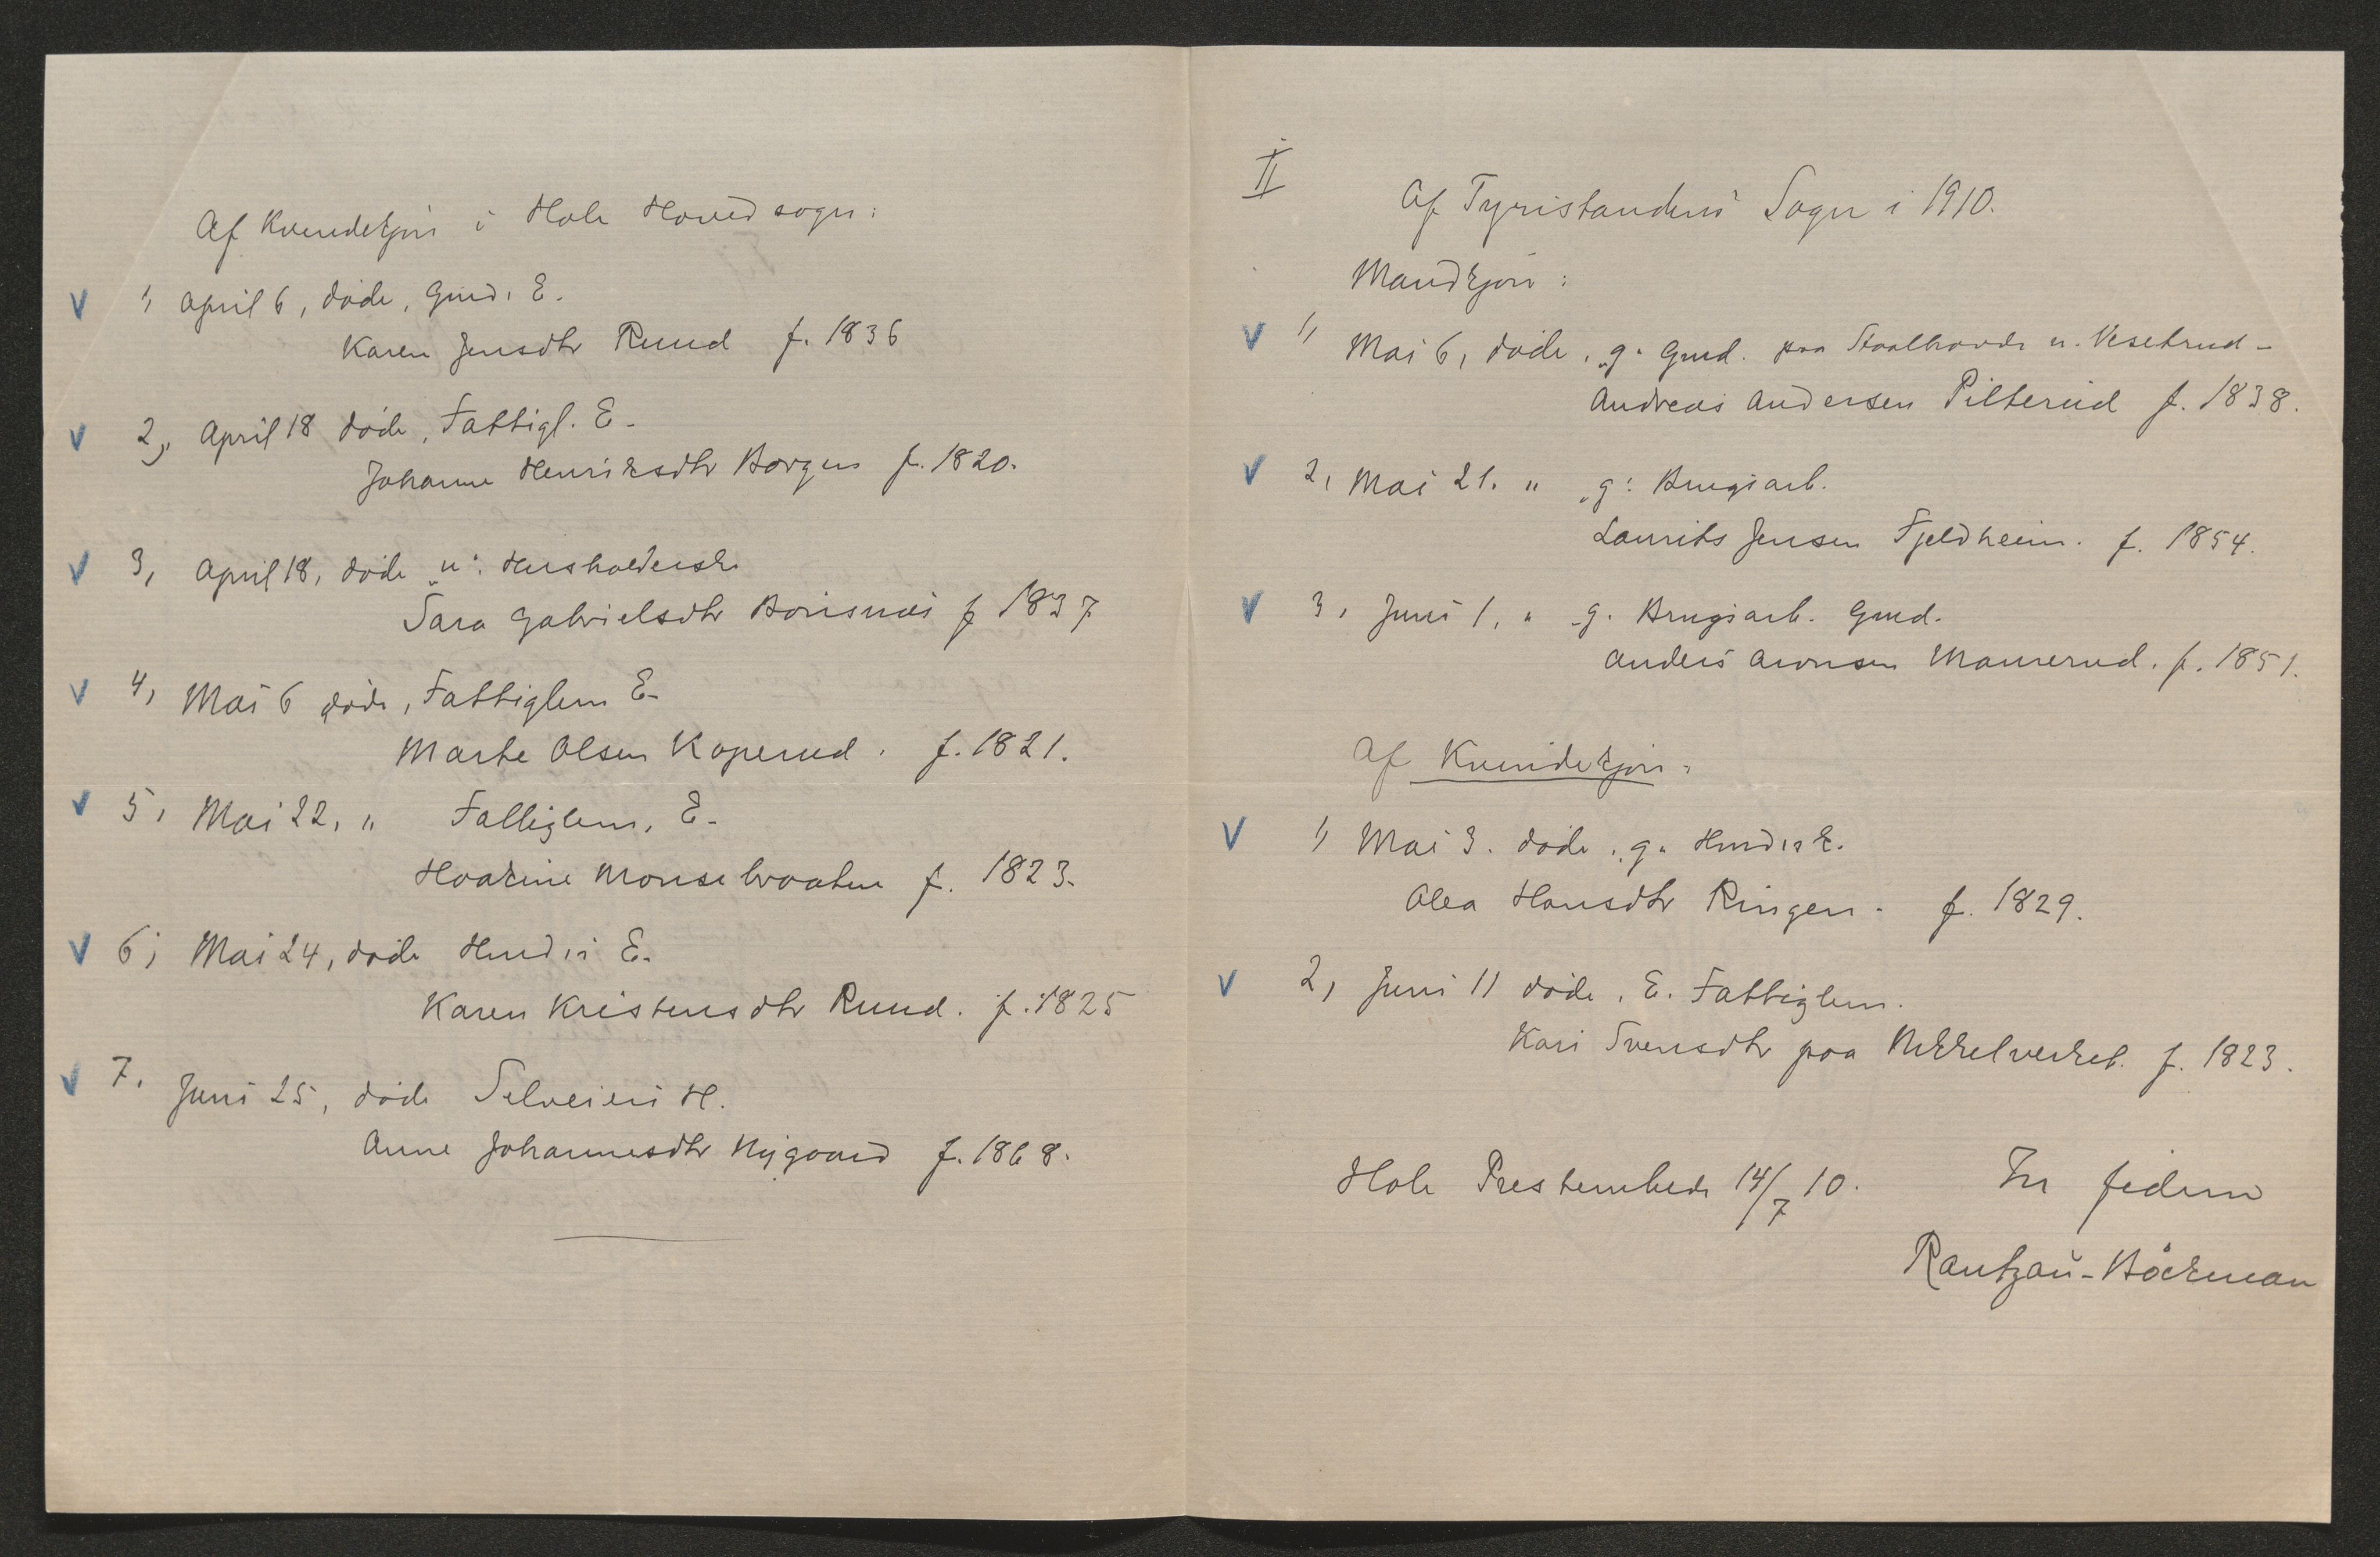 Af Kvindekjøn i Hole Hovedsogn:
V 1, April 6, døde, Gmd. E.
Karen Jensdtr Ruud f. 1836
V 2, April 18 døde, Fattigl. E.
Johanne Henriksdtr Borgen f. 1820.
V 3, April 18, døde "u": Husholderske
Sara Gabrielsdtr Bønsnæs f 1837
V 4, Mai 6 døde, Fattiglem E.
Marte Olsen Koperud. f. 1821.
V 5, Mai 22, " Fattiglem, E.
Haakine Monsebraaten f. 1823.
V 6, Mai 24, døde Hmd's E.
Karen Kristensdtr Ruud. f. 1825
V 7. Juni 25, døde Selveiers H.
Anne Johannesdtr Nygaard f. 1868.
II
Af Tyristrandens Sogn i 1910.
Mandkjøn:
V 1, Mai 6, døde, "g" Gmd. paa u. Vesetrud-
Andreas Andersen Pilterud f. 1838.
V 2, Mai 21. " "g": Brugsarb.
Laurits Jensen Fjeldheim. f. 1854.
V 3, Juni 1, " g. Brugsarb. Gmd.
Anders Aronsen Maurerud. f. 1851.
Af Kvindekjøn:
V 1, Mai 3. døde, "g"
Olea Hansdtr Ringen. f. 1829.
V 2, Juni 11 døde, E. Fattiglem.
Kari Svensdtr paa Nikkelverket. f. 1823.
Hole Prestembede 14/7 10. In fidem
Rantzau-Böckman